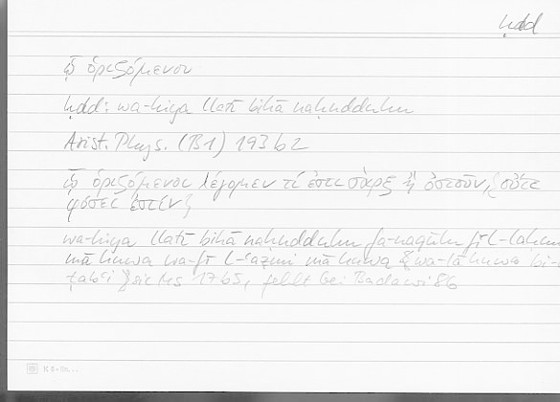 ḥdd
ᾧ ὁριζόμενοι
ḥdd: wa-hiya llatī bihā naḥudduhu
Arist. Phys. (B1) 193b2
ᾧ ὁριζόμενοι λέγομεν τί ἐστι σὰρξ ἢ ὀστοῦν, {οὔτε
φύσει ἐστίν}
wa-hiya llatī bihā naḥudduhu fa-naqūlu fī l-laḥmi
mā huwa wa-fī l-ʿaẓmi mā huwa {wa-lā huwa bi-
ṭabʿi} sic Ms 1765, fehlt bei Badawi 86